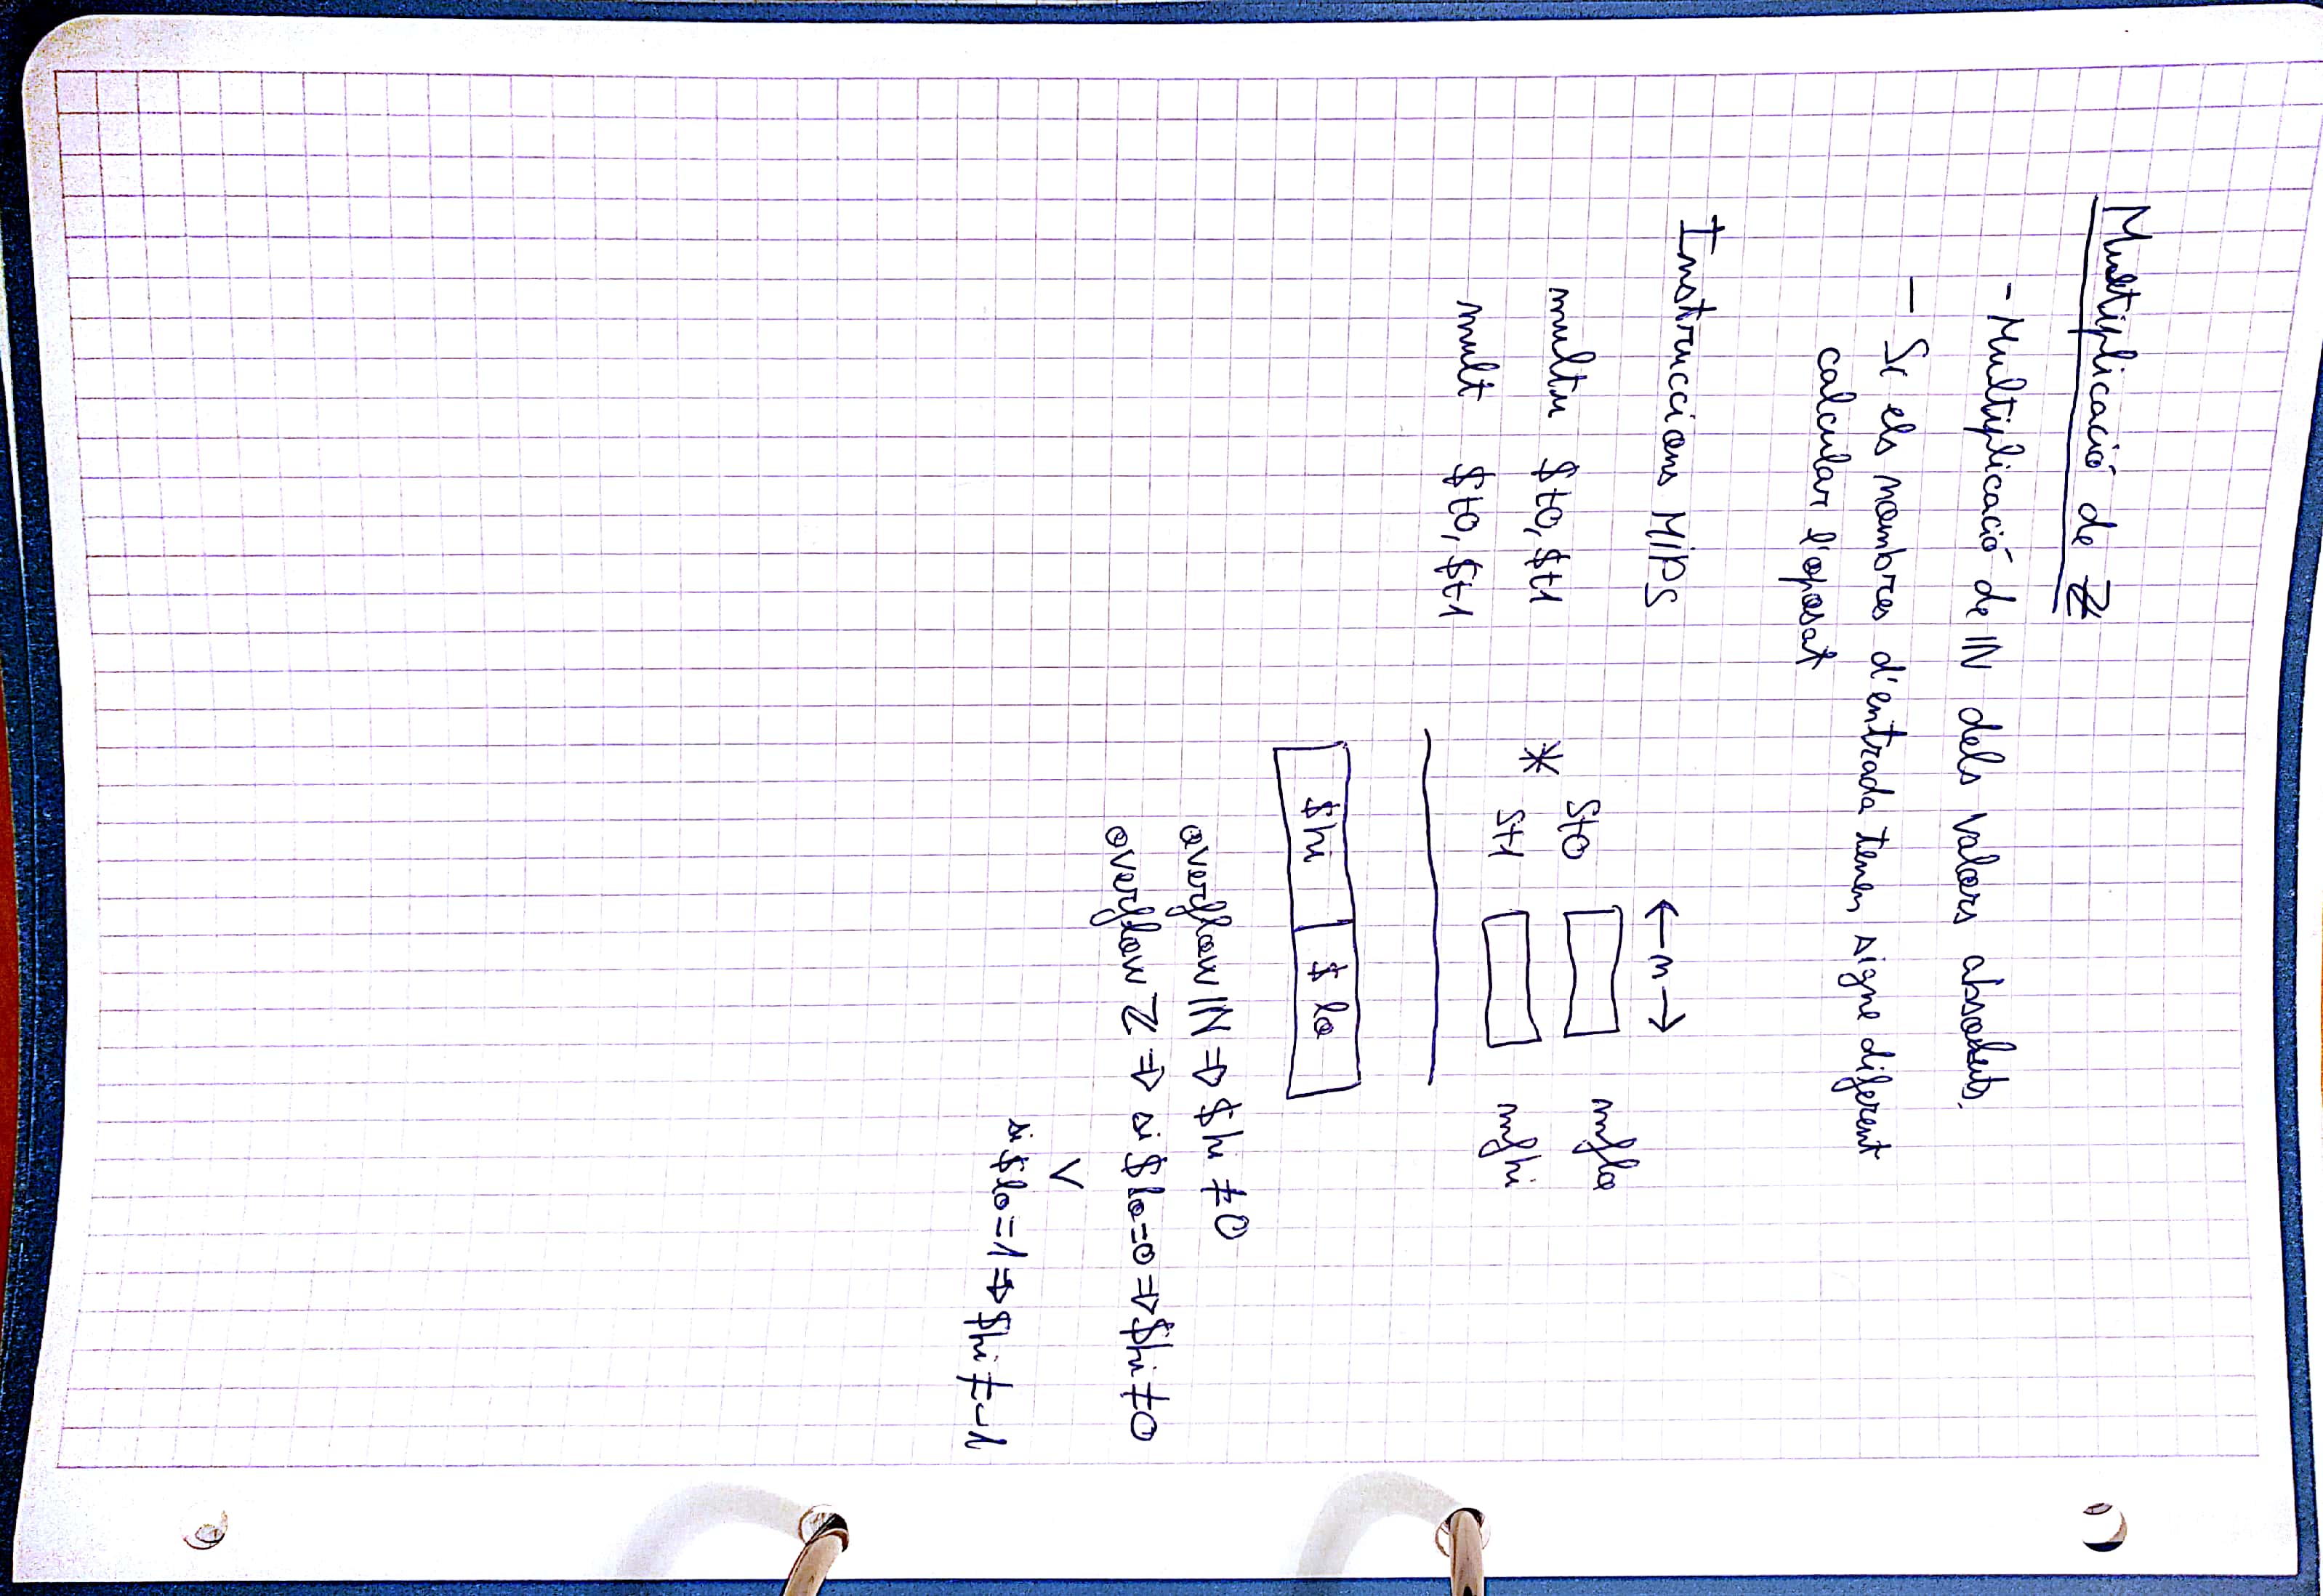 Multiplicació de ℤ
- Multiplicació de ℕ dels valors absoluts.
- Si els nombres d'entrada tenen signe diferent
calcular l'oposat
Instruccions MIPS
← n →
$t0 mflo
multu $t0, $t1
*
$t1 mfhi
mult $t0, $t1
$hi $lo
overflow ℕ ⇒ $hi ≠ 0
overflow ℤ ⇒ si $lo=0 ⇒ $hi ≠ 0
∨
si $lo=1 ⇒ $hi ≠ -1